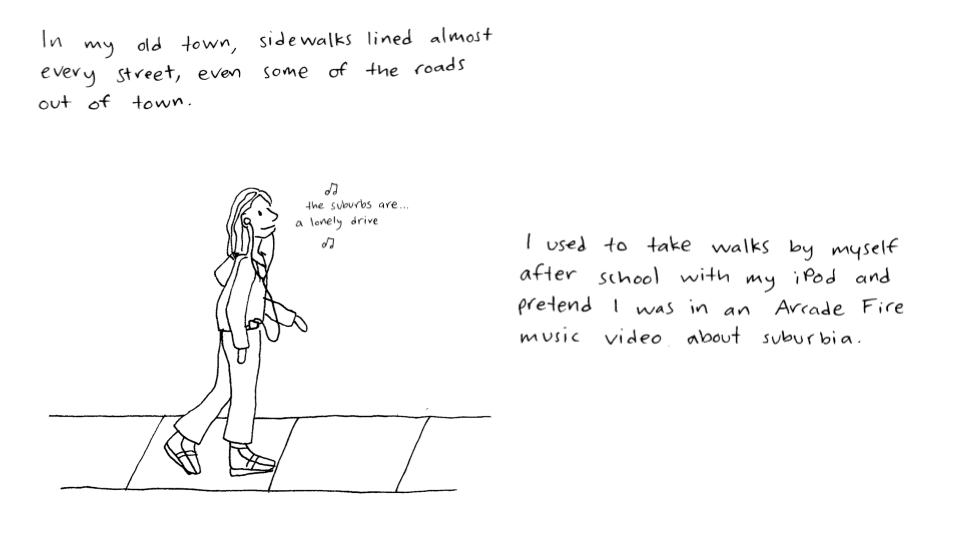 In my old town, sidewalks lined almost
every street, even some of the roads
out of town.
the suburbs are...
a lonely drive
I used to take walks by myself
after school with my iPod and
pretend I was in an Arcade Fire
music video about suburbia.